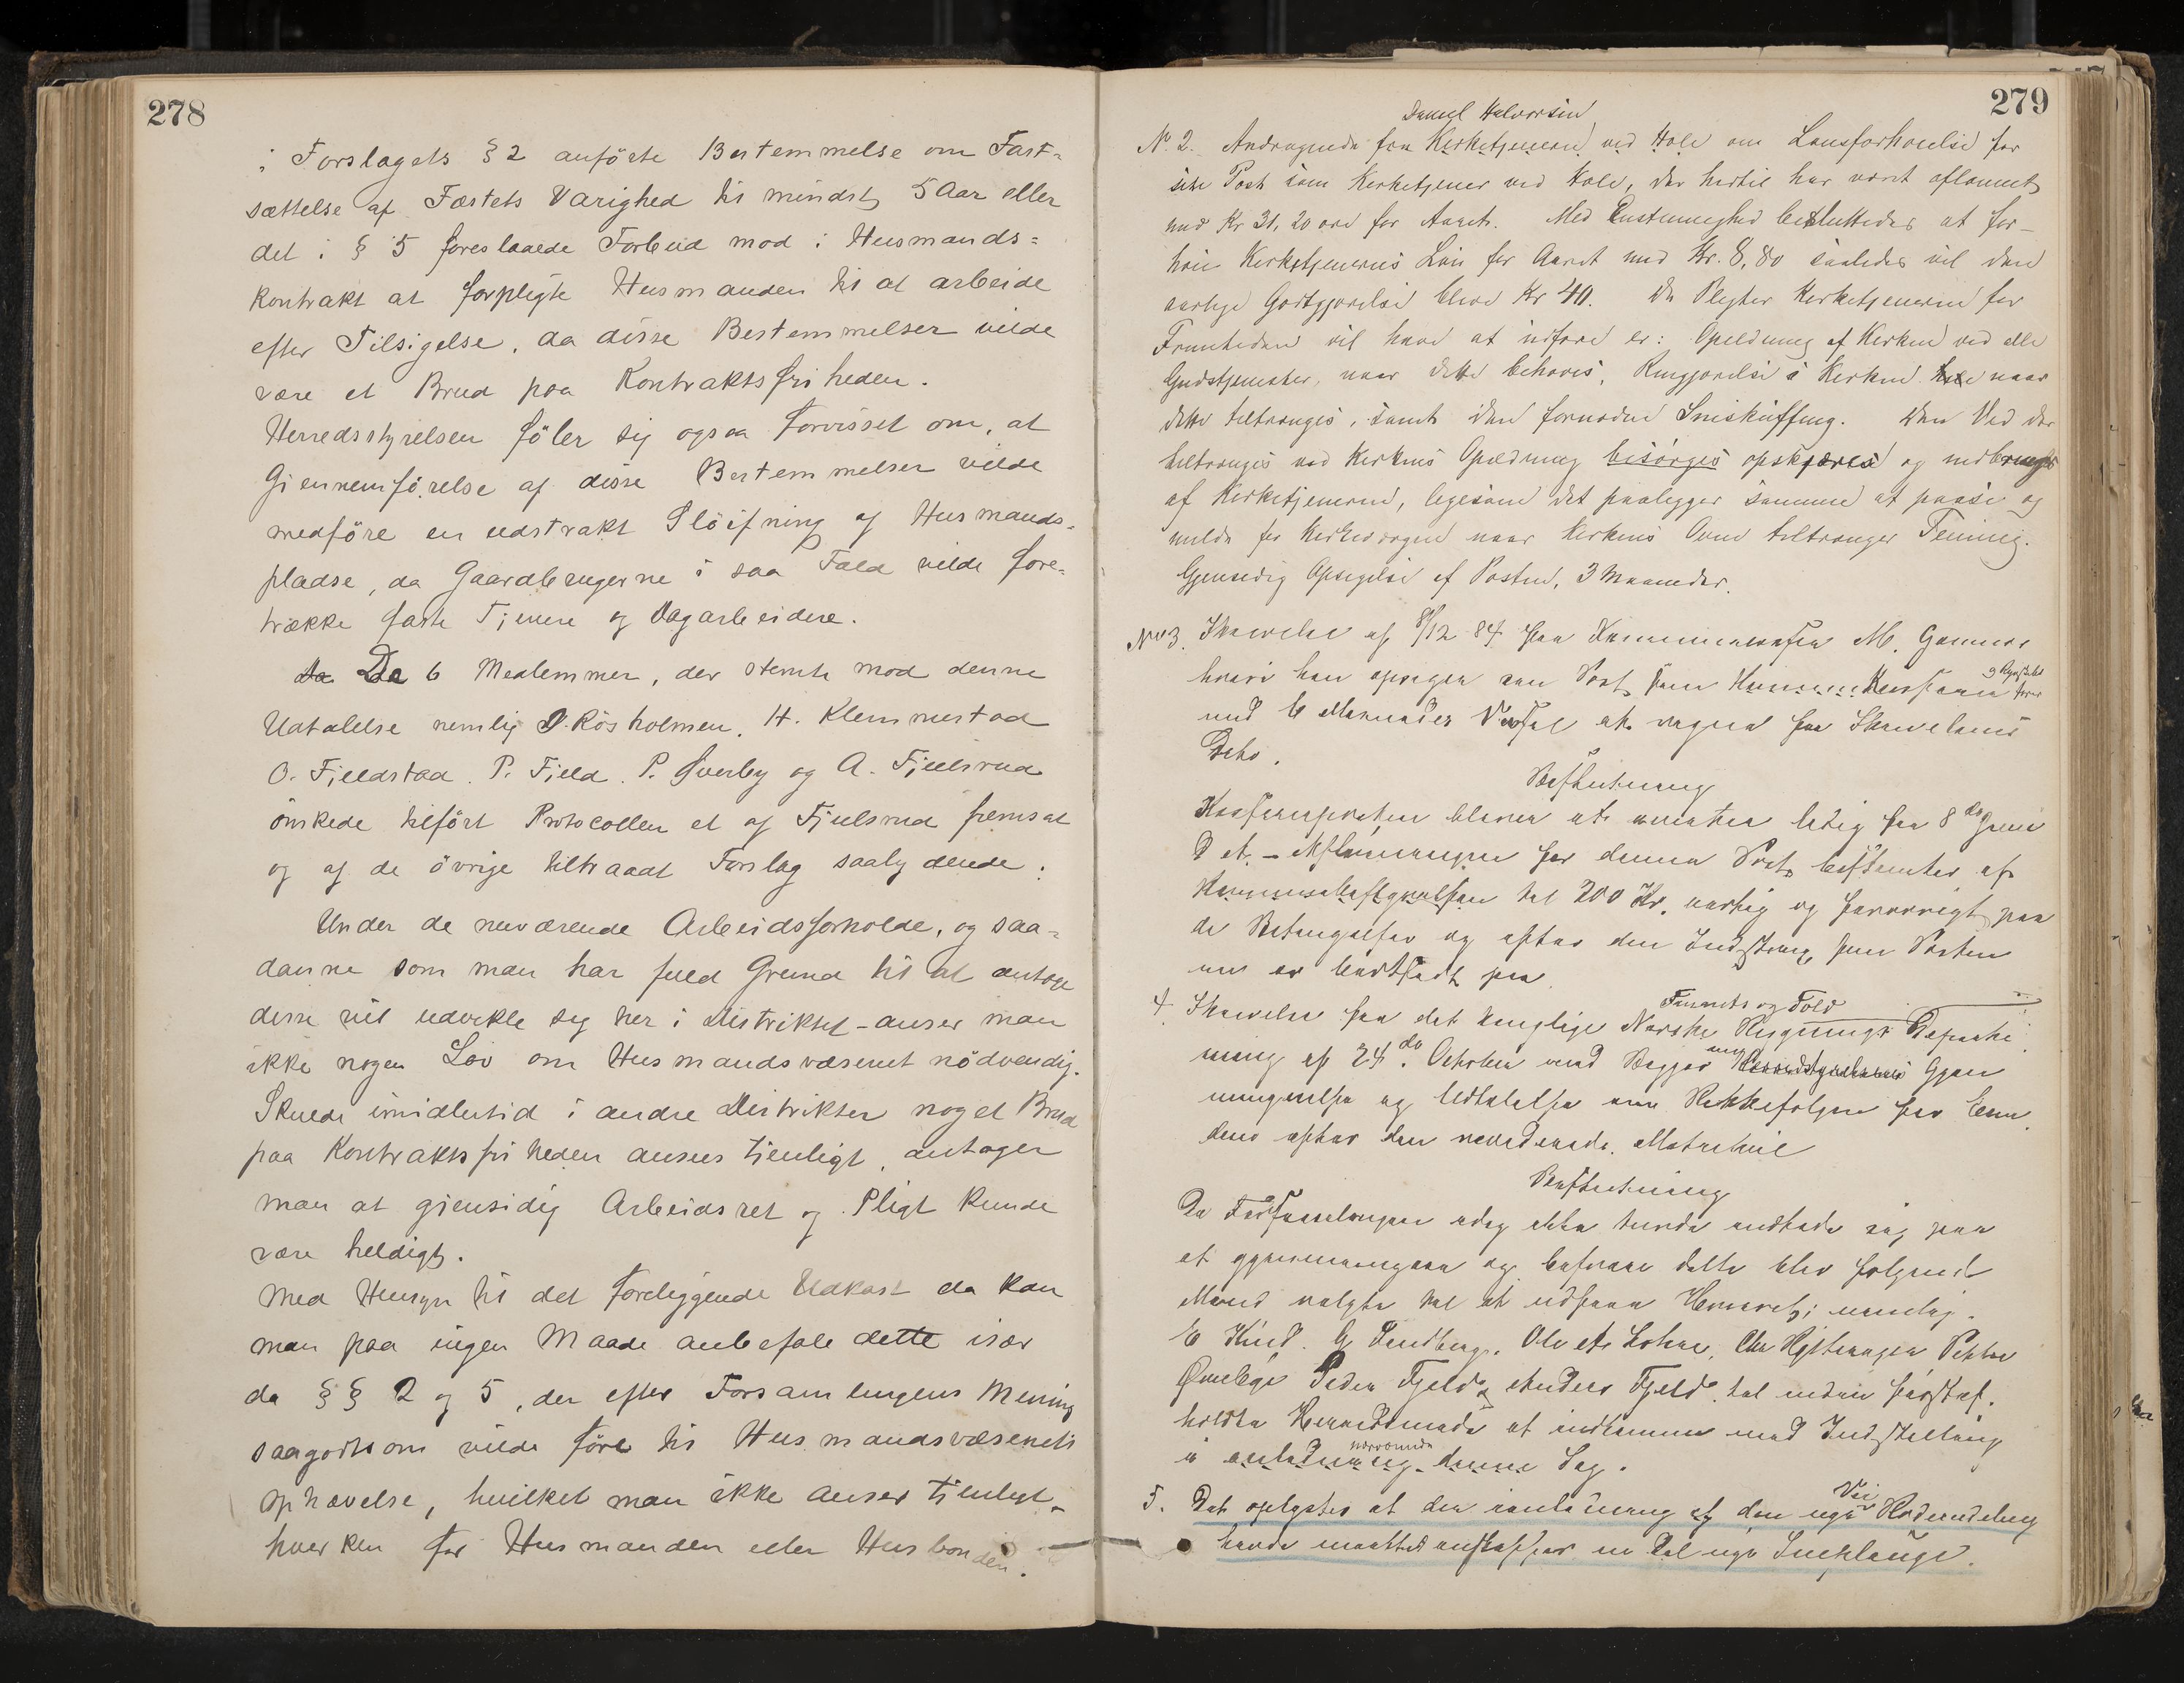 278
i Forslagets § 2 anförte Bestemmelse om Fast-
sættelse af Fæstets Varighed til mindst 5 Aar eller
det i § 5 foreslaaede Forbud mod i Husmands-
kontrakt at forpligte Husmanden til at arbeide
efter Tilsigelse, da disse Bestemmelser vilde
være et Brud paa Kontraktsfriheden.
Herredsstyrelsen föler sig ogsaa forvisset om, at
Giennemförelse af disse Bestemmelser vilde
medföre en udstrakt Slöifning af Husmands-
pladse, da Gaardbrugerne i saa Fald vilde fore-
trække faste Tjenere og Dagarbeidere.
De 6 Medlemmer, der stemte mod denne
Udtalelse nemlig D. Rösholmen, H. Klemmestad
O. Fjeldstad. P. Fjeld. P. Hverby og A. Fjulsrud
önskede tilfört Protocollen et af Fjulsrud fremsat
og af de övrige tiltraadt Forslag saalydende:
Under de nuværende Arbeidsforholde, og saa-
danne som man har fuld Grund til at antage
disse vil udvikle sig her i Distriktet - anser man
ikke nogen Lov om Husmandsvæsenet nödvendig.
Skulde imidlertid i andre Distrikter noget Brud
paa Kontraktsfriheden ansees tjenligt, antager
man at gjensidig Arbeidsret og Pligt kunde
være heldigt.
Med Hensyn til det foreliggende Udkast da kan
man paa ingen Maade anbefale dette især
da §§ 2 og 5, der efter Forsamlingens Mening
saagodtsom vilde före til Husmandsvæsenets
Ophævelse, hvilket man ikke anser tjenligt
hverken for Husmanden eller Husbonden.
279
Daniel Halvorsen
No 2. Andragende fra Kirketjeneren ved Hole om Lønsforhøielse for
sin Post som Kirketjener ved Hole, der hidtil har været aflønnet
med Kr 31,20 øre for Aaret. Med Enstemmighed besluttedes at for-
høie Kirketjenerens Løn for Aaret med Kr. 8,80 saaledes vil den
aarlige Godtgjørelse blive Kr 40. De Pligter Kirketjeneren for
Fremtiden vil have at udføre er: Opeldning af Kirken ved alle
Gudstjenester, naar dette behøves, Rengjørelse i Kirken naar
dette tiltrænges, samt den fornødne Sneskuffing. Den Ved der
tiltrænges ved Kirkens Opeldning besørges opskjæres og indbringes
af Kirketjeneren, ligesom det paaligger samme at paase og
melde for Kirkeværgen naar Kirkens Ovne tiltrænger Feining.
Gjensidig Opsigelse af Posten, 3 Maaneder.
No 3. Skrivelse af 8/12 84 fra M.
hvori han opsiger sin Post som
med 6 Maaneder Varsel at regne fra Skrivelsens
Dato.
Beslutning
Posten bliver at ansætte ledig fra 8de Juni
Aflønningen for denne Post bestemtes af
Kommunebestyrelsen til 200 Kr. aarlig og forøvrigt paa
de Betingelser og efter den Instrux, som Posten
nu er bortsadt paa
4. Skrivelse fra det kongelige Norske Regjerings Departe-
Finants og Told
ment af 24de October med Begjær om Gjen-
nemgaaelse og Udtalelse om Rækkefølgen for Eien-
dene efter den reviderede Matrikul
Beslutning
Da Forsamlingen idag ikke kunde indlade sig paa
at gjennemgaaa og besvare dette blev følgende
Mænd valgte til at udføre Hvervet; nemlig.
E Kind. G Sundberg. Ole Lohre.
Peder Fjeld, Anders Fjeld, til inden først af-
holdte Herredsmøde at indkomme med Indstilling
i anledning nærværende Sag.
5. Det oplystes at der i anledning af den nye Vei Rodeinddeling
havde maattet anskaffes en Del nye Sneplouge.